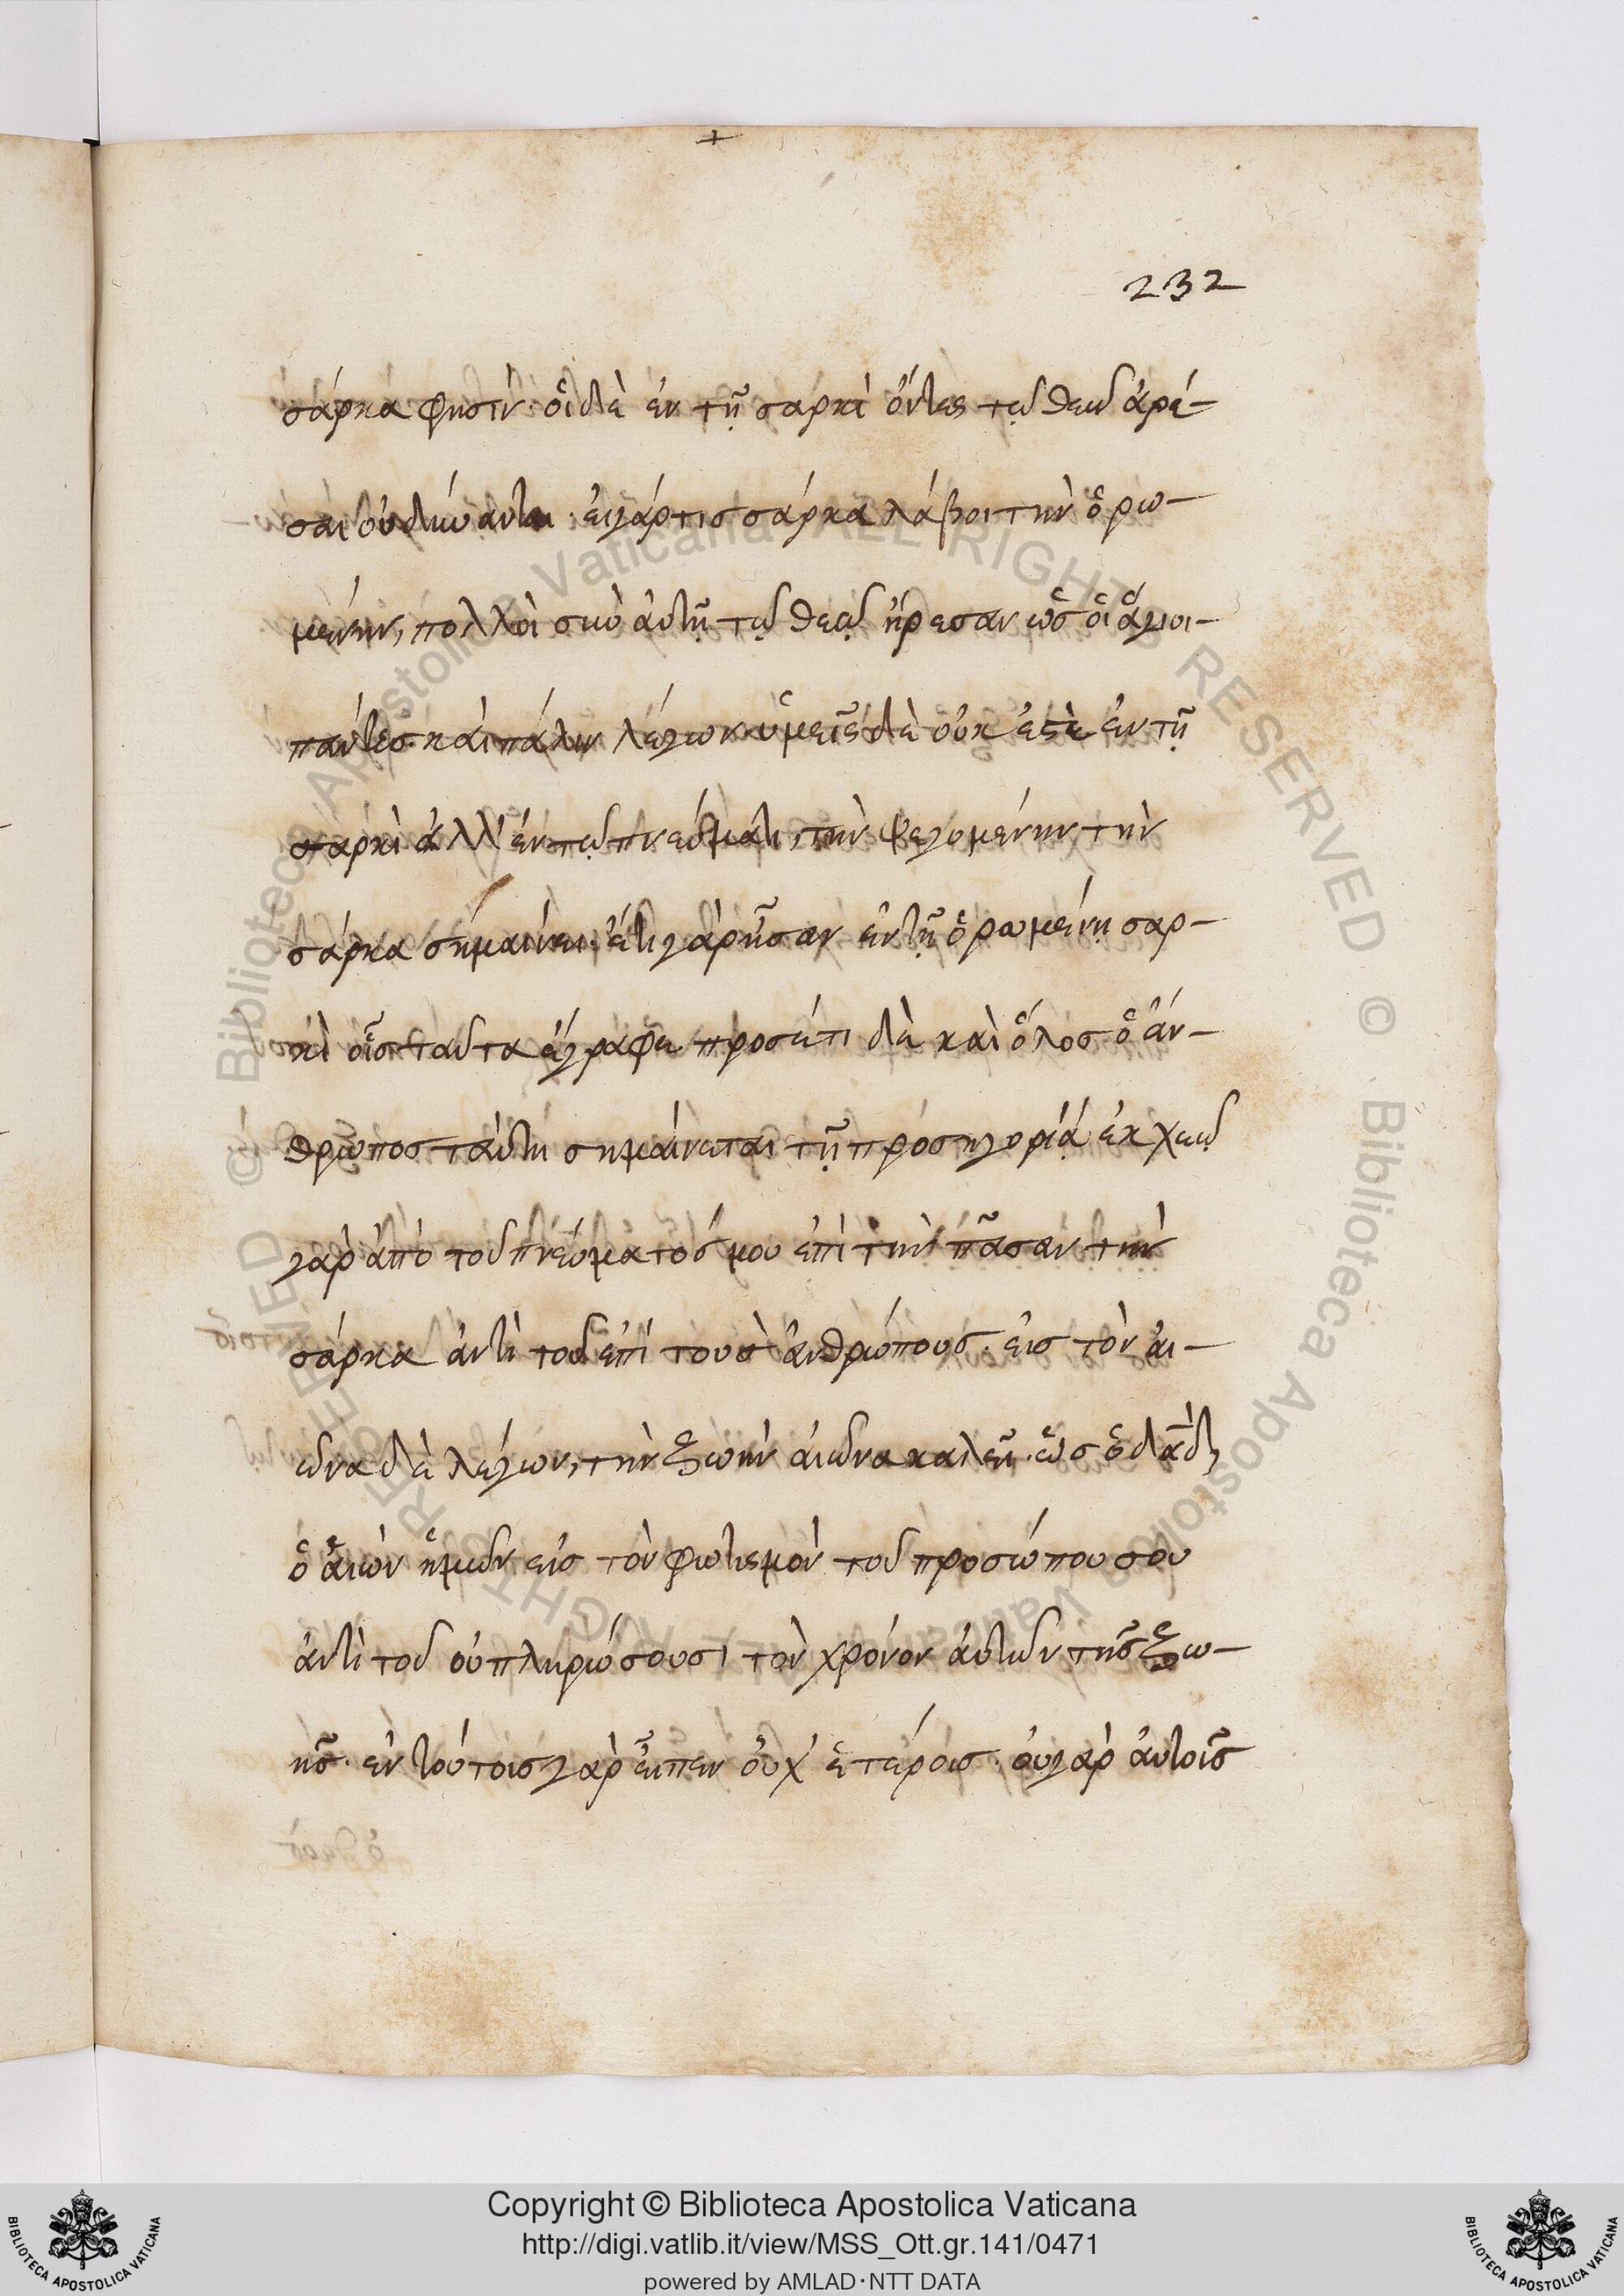 232
σάρκα φησίν· οἱ δὲ ἐν τῇ σαρκὶ ὄντες τῷ θεῷ ἀρέ-
σαι οὐ δύνανται· εἰ γάρ τις σάρκα λάβοι τὴν ὁρω-
μένην, πολλοὶ σὺν ἀυτῇ τῷ θεῷ ἤρεσαν ὡς οἱ ἅγιοι
πάντες· καὶ πάλιν λέγων ὑμεῖς δὲ οὐκ ἐστὲ ἐν τῇ
σαρκὶ ἀλλ' ἐν τῷ πνεύματι, τὴν ψεγομένην τὴν
σάρκα σημαίνει· ἔτι γὰρ ἦσαν ἐν τῇ ὁρωμένῃ σαρ-
κὶ οἷς ταῦτα ἔγραφε· προσέτι δὲ καὶ ὅλος ὁ ἄν-
θρωπος ταύτῃ σημαίνεται τῇ προσηγορίᾳ ἐκχεῶ
γὰρ ἀπὸ τοῦ πνεύματός μου ἐπὶ τὴν πᾶσαν τὴν
σάρκα ἀντὶ τοῦ ἐπὶ τοὺς ἀνθρώπους· εἰς τὸν αἰ-
ῶνα δὲ λέγων, τὴν ζωὴν αἰῶνα καλεῖ· ὡς ὁ δᾱδ,
ὁ αἰὼν ἡμῶν εἰς τὸν φωτισμὸν τοῦ προσώπου σου
ἀντὶ τοῦ οὐ πληρώσουσι τὸν χρόνον ἀυτῶν τῆς ζω-
ῆς· ἐν τούτοις γὰρ εἶπεν οὐχ' ἑτέροις· οὐ γὰρ ἀυτοῖς
Copyright © Biblioteca Apostolica Vaticana
http://digi.vatlib.it/view/MSS_Ott.gr.141/0471
powered by AMLAD·NTT DATA